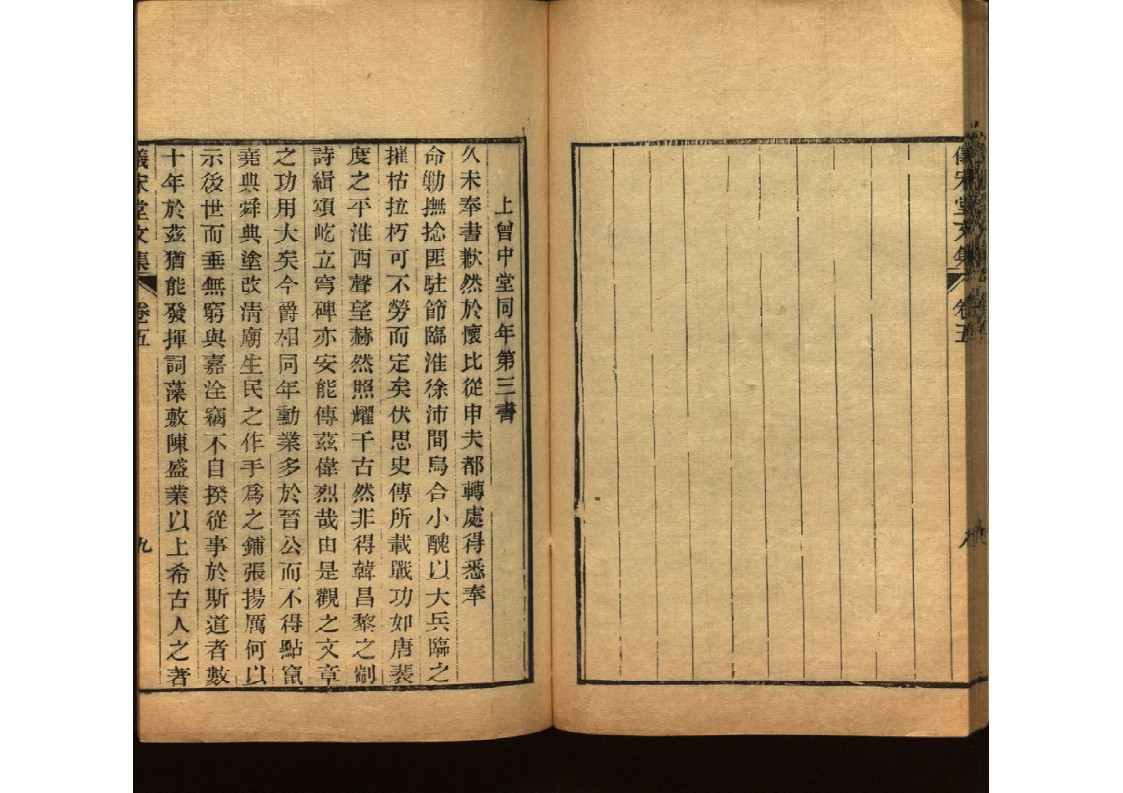 儀宋堂文集
卷五
上曾中堂同年第三書
久未奉書歉然於懷比從申夫都轉處得悉奉
命勦撫捻匪駐節臨淮徐沛間烏合小醜以大兵臨之
摧枯拉朽可不勞而定矣伏思史傳所載戰功如唐裴
度之平淮西聲望赫然照耀千古然非得韓昌黎之剬
詩緝頌屹立穹碑亦安能傳茲偉烈哉由是觀之文章
之功用大矣今爵相同年勳業多於晉公而不得點竄
堯典舜典塗改淸廟生民之作手爲之鋪張揚厲何以
示後世而垂無窮與嘉淦竊不自揆從事於斯道者數
十年於茲猶能發揮詞藻敷陳盛業以上希古人之著
儀宋堂文集
卷五
九